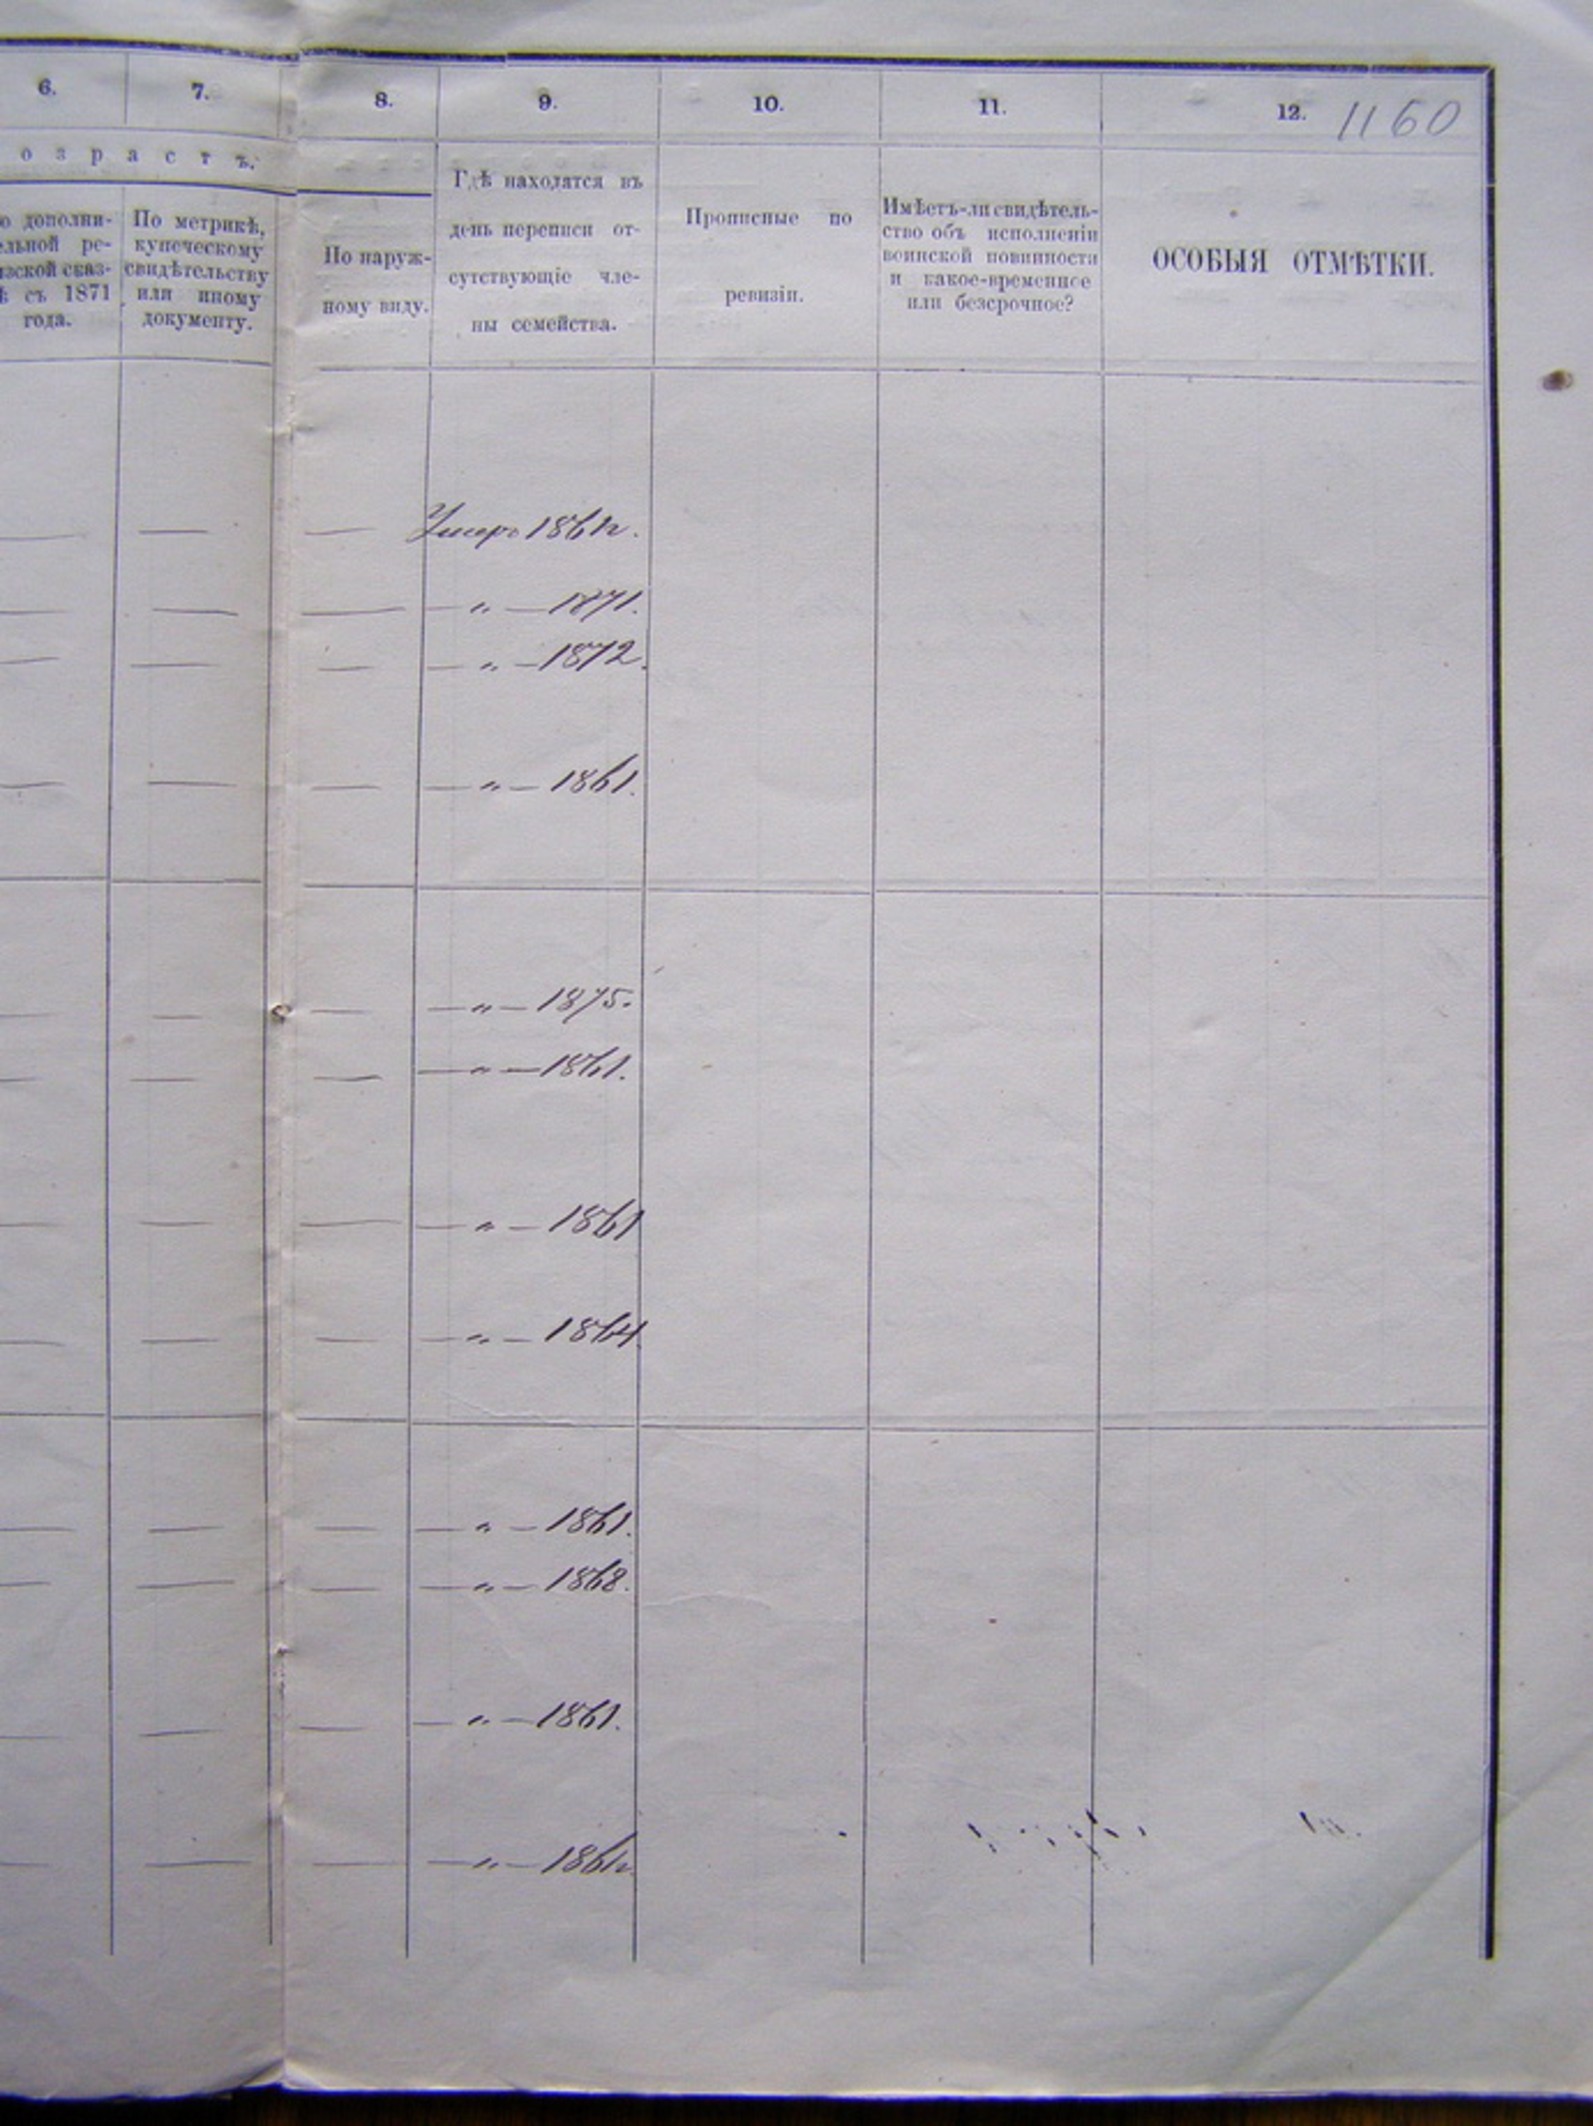 6. 7. 8. 9. 10. 11. 12. 1160
озрастъ.
о дополни-
ельной ре-
изской сказ-
ѣ съ 1871
года.
По метрикѣ,
купеческому
свидѣтельству
или иному
документу.
По наруж-
ному виду.
Гдѣ находятся въ
день переписи от-
сутствующіе чле-
ны семейства.
Прописные по
ревизіи.
Имѣетъ-ли свидѣтель-
ство объ исполненіи
воинской повинности
и какое-временное
или безсрочное?
ОСОБЫЯ ОТМѢТКИ.
— — — Умеръ 1861г.
— — — — „ — 1871.
— — — — „ — 1872.
— — — — „ — 1861.
— — — — „ — 1875.
— — — — „ — 1861.
— — — — „ — 1861
— — — — „ — 1864
— — — — „ — 1861.
— — — — „ — 1868.
— — — — „ — 1861.
— — — — „ — 1861г.